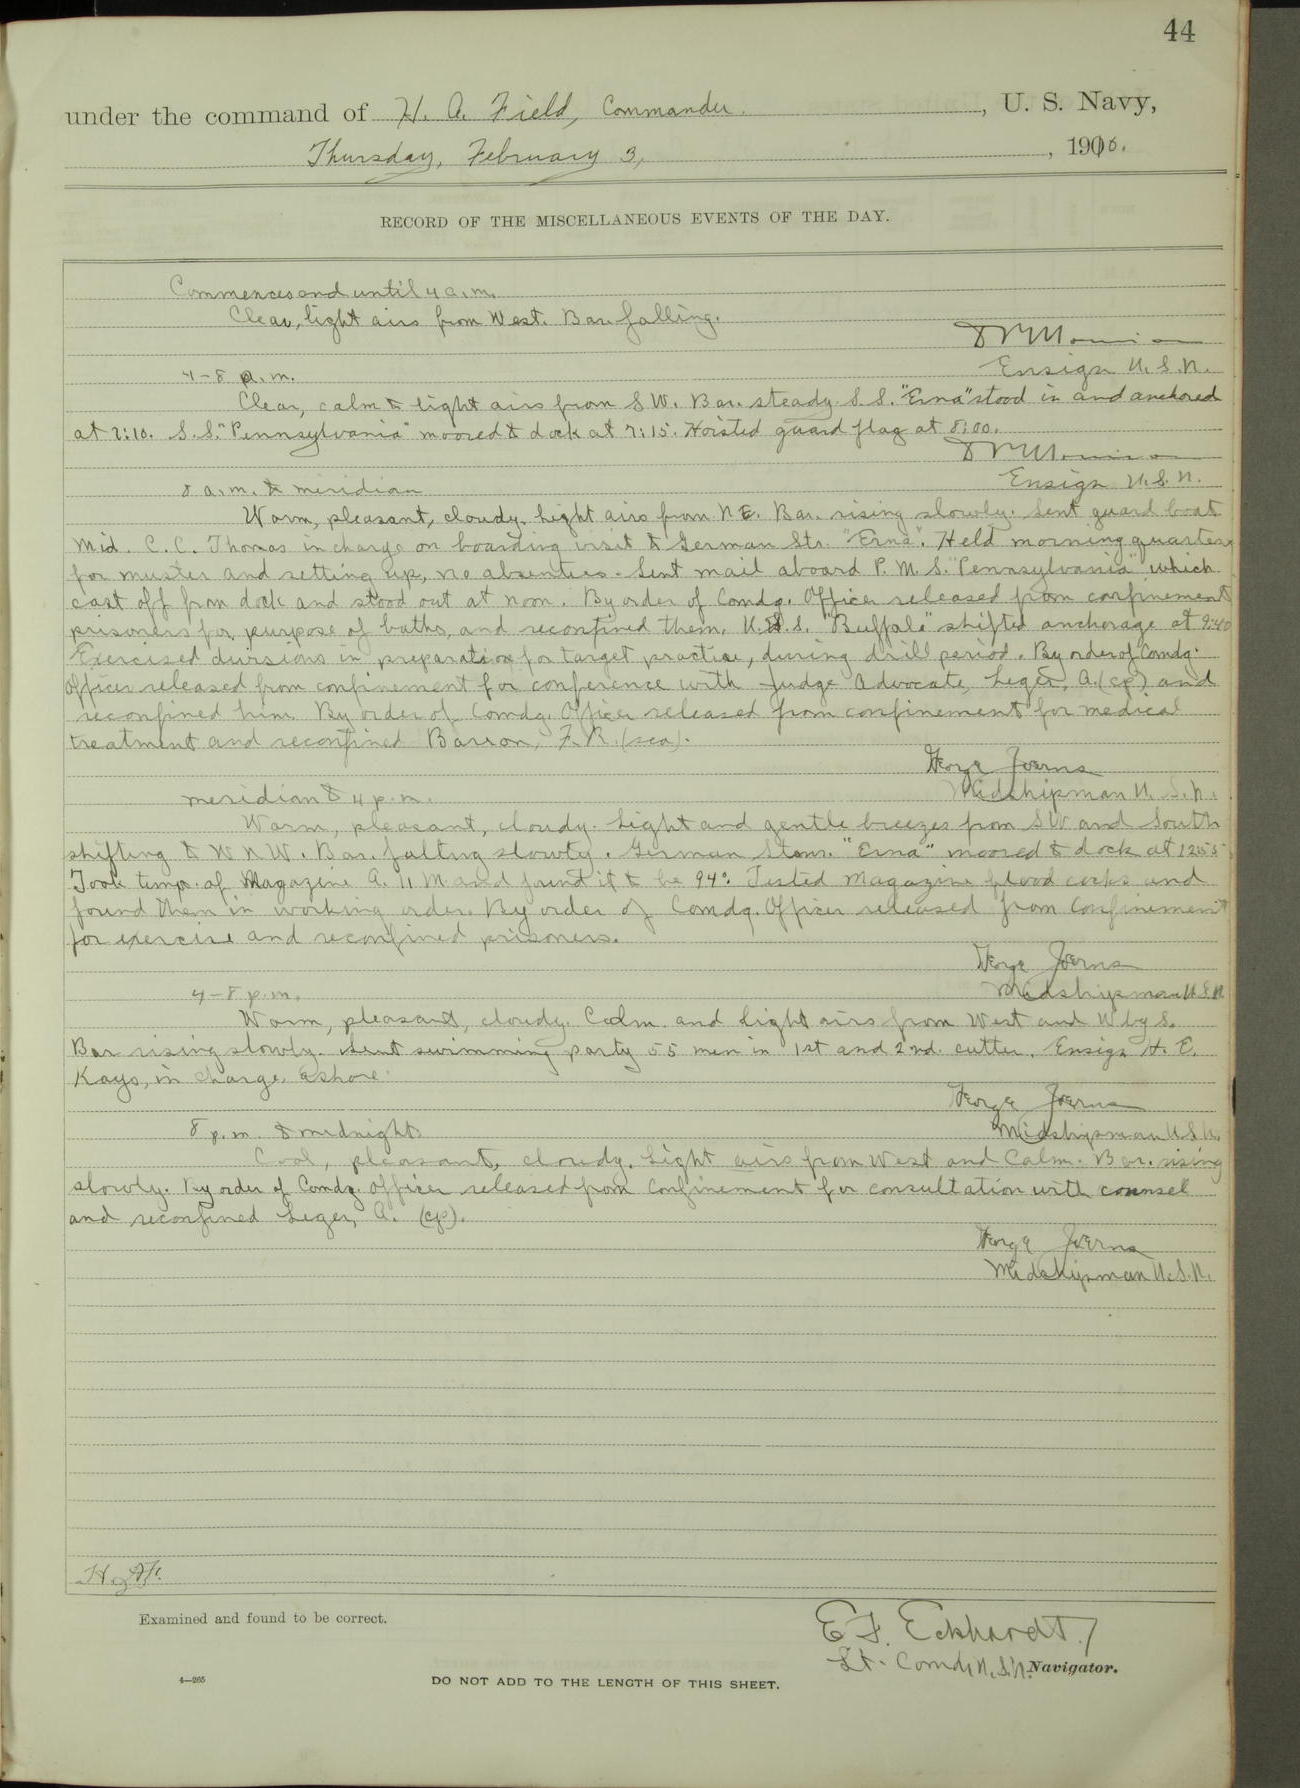 44
under the command of H. A. Field, Commander. , U. S. Navy,
Thursday, February 3, , 1910.
RECORD OF THE MISCELLANEOUS EVENTS OF THE DAY.
Commences and until 4 a.m.
Clear, light airs from West. Bar. falling.
Ensign U.S.N.
4-8 a.m.
Clear, calm to light airs from S W. Bar. steady. S.S. "Erna" stood in and anchored
at 7:10. S.S. "Pennsylvania" moored to dock at 7:15. Hoisted guard flag at 8:00.
Ensign U.S.N.
8 a.m. to meridian
Warm, pleasant, cloudy. Light airs from N E. Bar. rising slowly. Sent guard boat
Mid. C. C. Thomas in charge on boarding visit to German Str. "Erna". Held morning quarters
for muster and setting up, no absentees. Sent mail aboard P. M. S. "Pennsylvania" which
cast off from dock and stood out at noon. By order of Comdg. Officer released from confinement
prisoners for purpose of baths, and reconfined them. U.S.S. "Buffalo" shifted anchorage at 9:40
Exercised divisions in preparation for target practice, during drill period. By order of Comdg.
Officer released from confinement for conference with Judge Advocate, Leger, A. (cp) and
reconfined him. By order of Comdg. Officer released from confinement for medical
treatment and reconfined Barron, F. R. (sea).
George Joerns
Midshipman U. S. N.
meridian to 4 p.m.
Warm, pleasant, cloudy. Light and gentle breezes from SW and South
shifting to W N W. Bar. falling slowly. German Stmr. "Erna" moored to dock at 12:55
Took temps. of Magazine A. 11 M and found it to be 94°. Tested Magazine flood cocks and
found them in working order. By order of Comdg. Officer released from confinement
for exercise and reconfined prisoners.
George Joerns
Midshipman U.S.N.
4-8 p.m.
Warm, pleasant, cloudy. Calm and light airs from West and W by S.
Bar rising slowly. Sent swimming party 55 men in 1st and 2nd. cutter, Ensign H. E.
Kays, in charge, ashore.
George Joerns
Midshipman U.S.N.
8 p.m. to midnight
Cool, pleasant, cloudy. Light airs from West and Calm. Bar. rising
slowly. By order of Comdg. Officer released from confinement for consultation with counsel
and reconfined Leger, A. (cp).
George Joerns
Midshipman U.S.N.
H.A.F.
Examined and found to be correct.
E. F. Eckhardt,
Lt. Comdr U.S.N. Navigator.
4—265
DO NOT ADD TO THE LENGTH OF THIS SHEET.